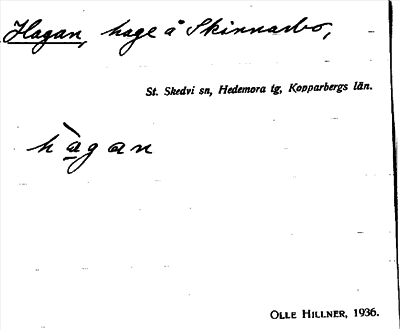 Hagan, hage å Skinnarbo,
St. Skedvi sn, Hedemora tg, Kopparbergs län.
hàgan
OLLE HILLNER, 1936.